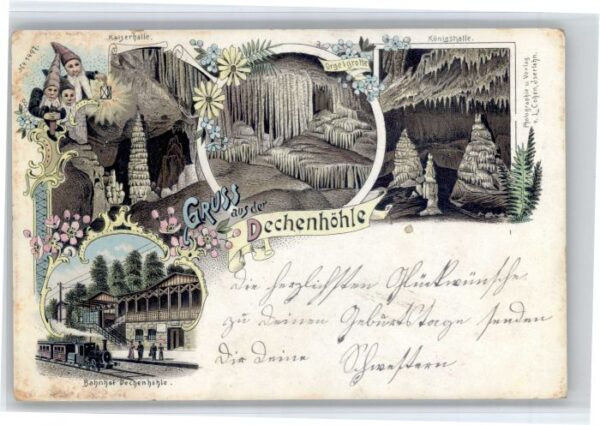 No 1497.
Kaiserhalle.
Orgelgrotte
Königshalle.
Photographie u. Verlag
v. L. Cohen, Iserlohn.
GRUSS
aus der
Dechenhöhle
Die herzlichsten Glückwünsche
zu Deinem Geburtstage senden
Dir Deine Schwestern
Bahnhof Dechenhöhle.